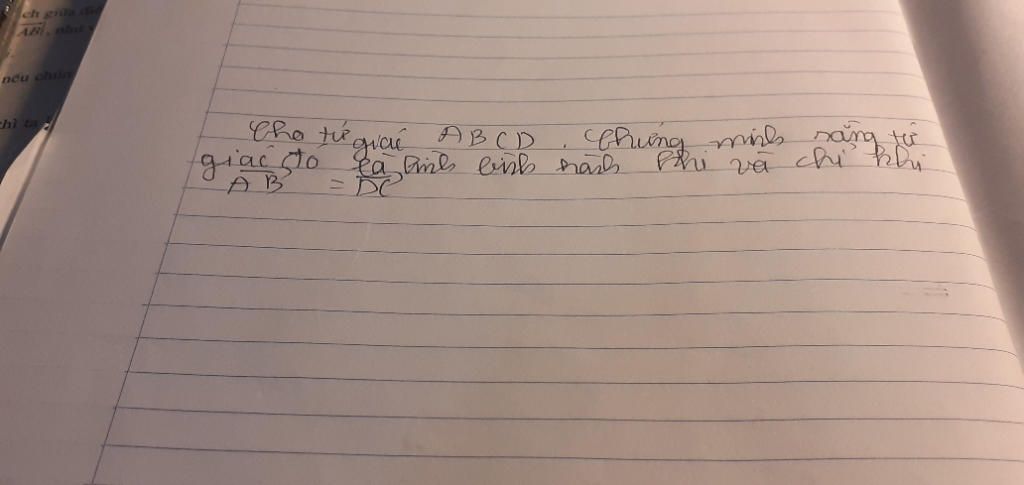 ch giữa
AB, như
nếu
hì ta
Cho tứ giác ABCD. Chứng minh rằng tứ
giác đó là hình bình hành khi và chỉ khi
AB = DC